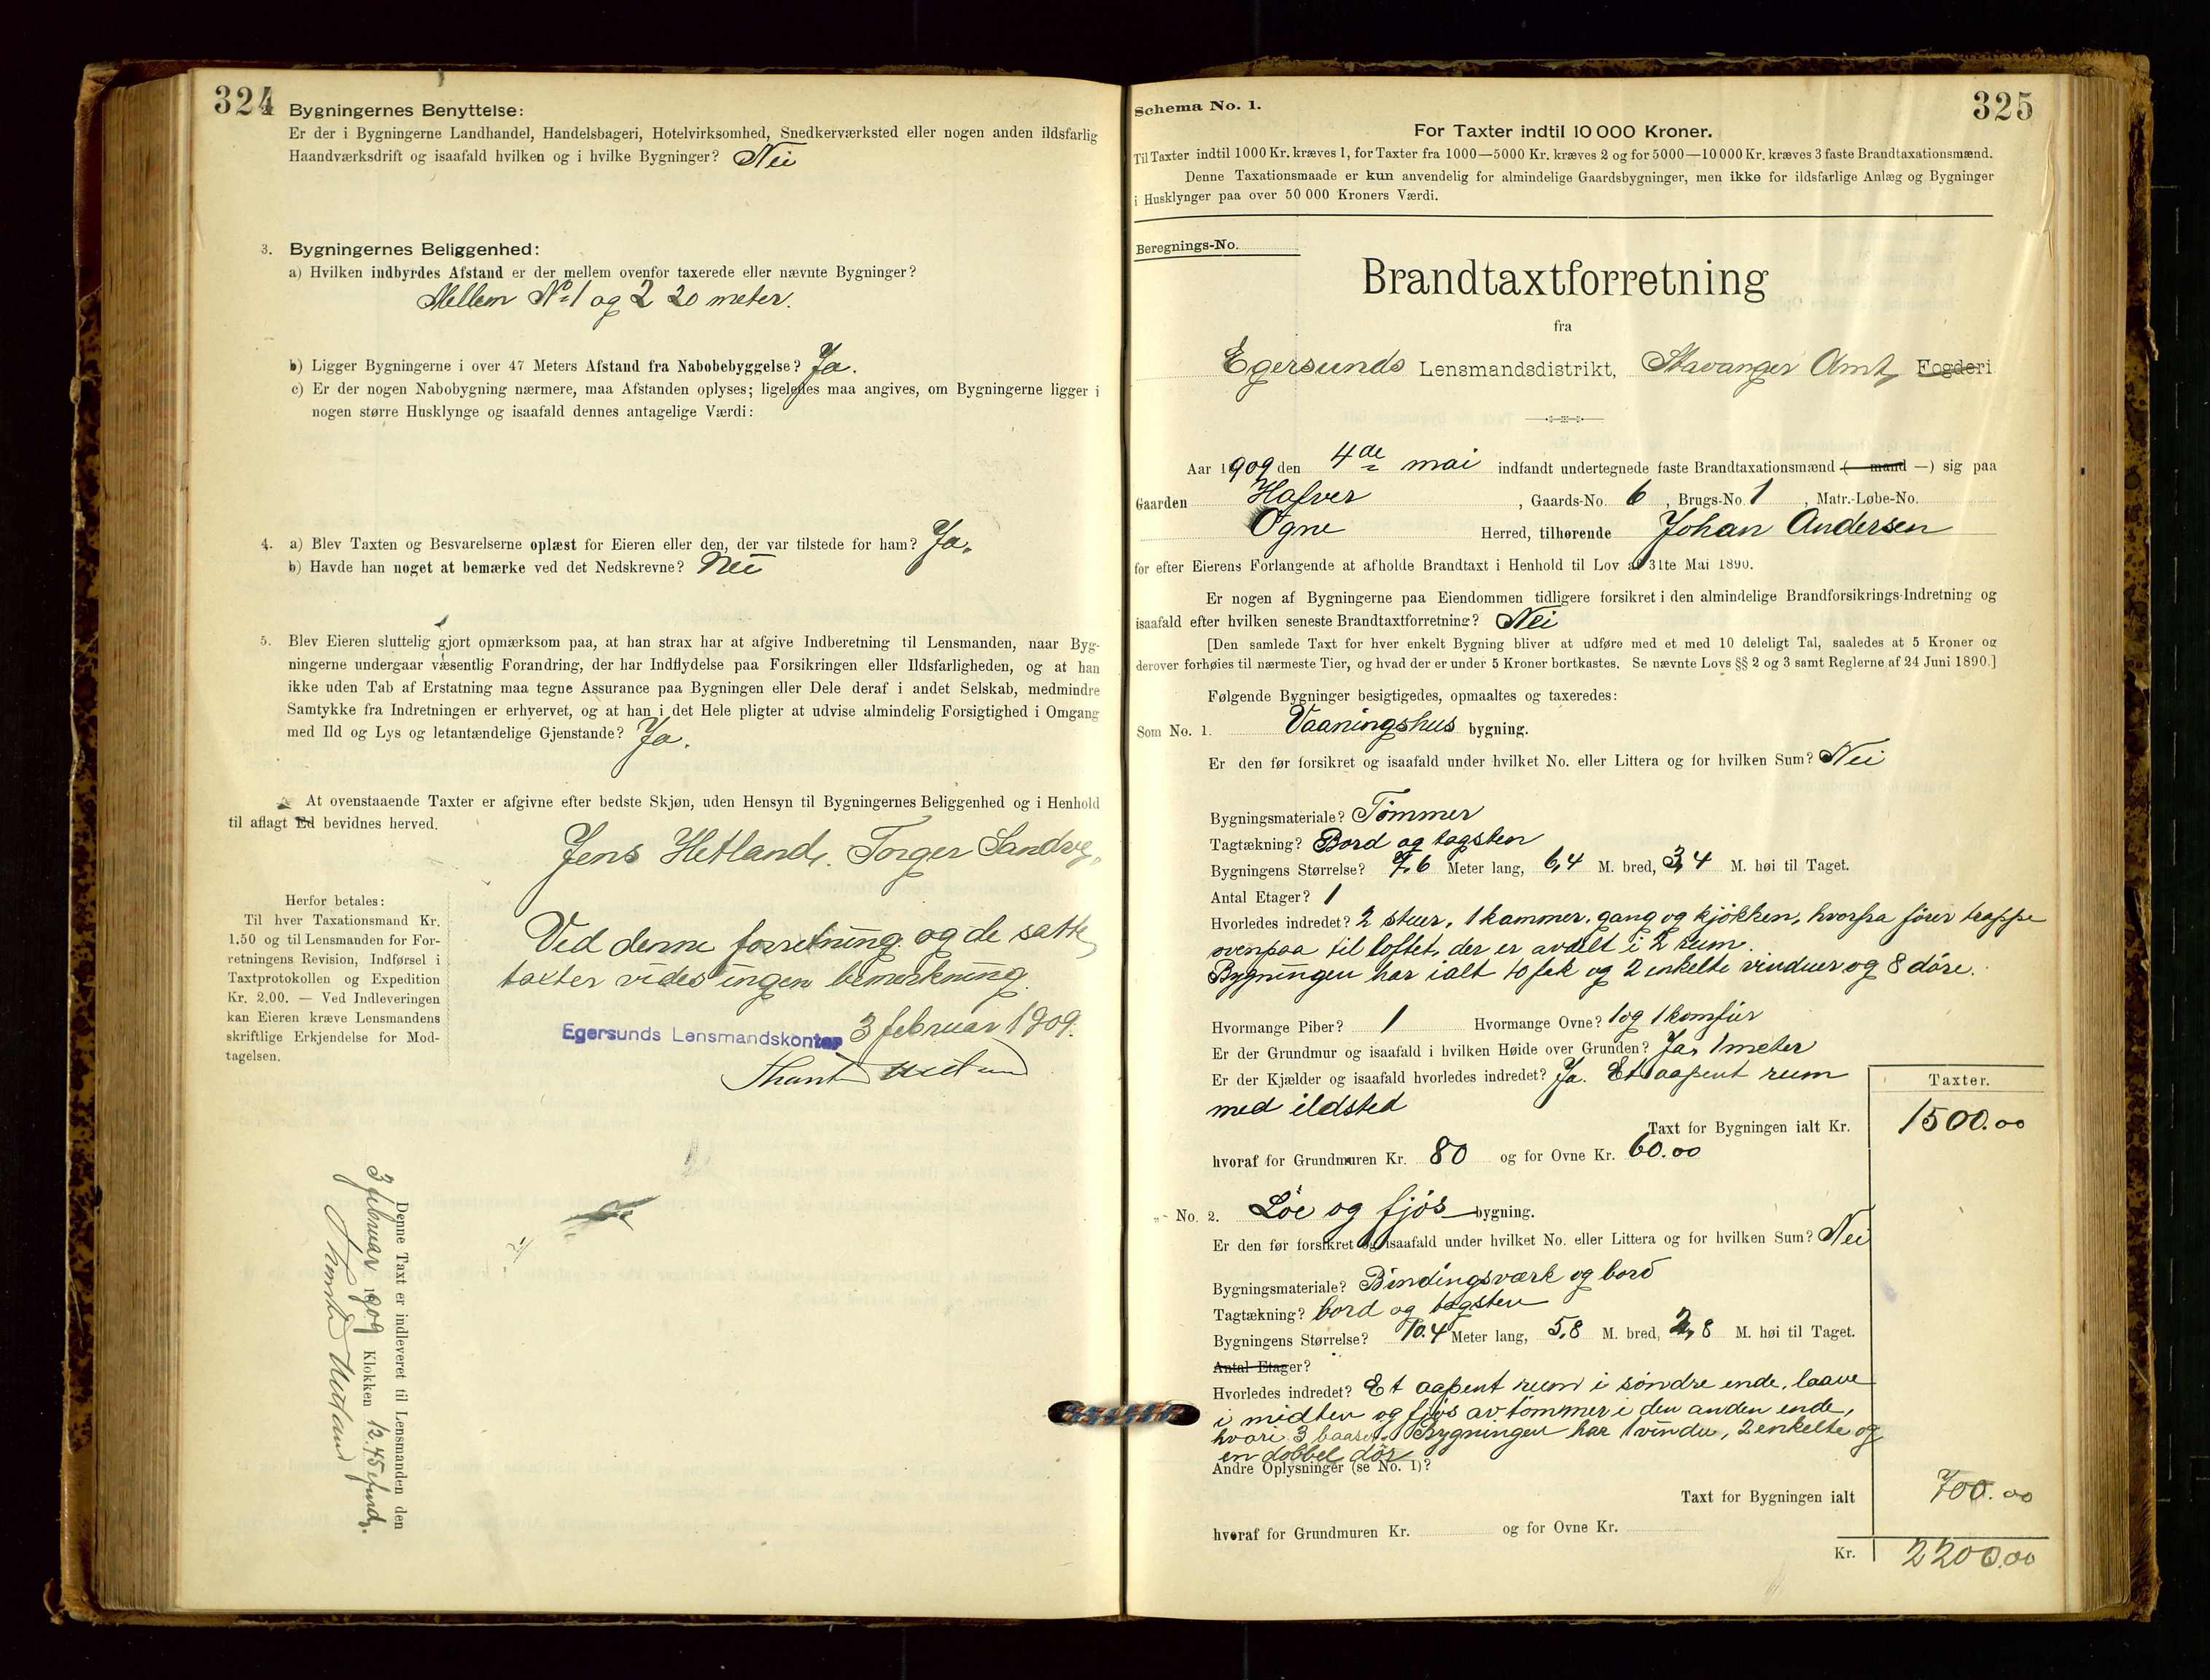 324
Bygningernes Benyttelse:
Er der i Bygningerne Landhandel, Handelsbageri, Hotelvirksomhed, Snedkerværksted eller nogen anden ildsfarlig
Haandværksdrift og isaafald hvilken og i hvilke Bygninger? Nei
3. Bygningernes Beliggenhed:
a) Hvilken indbyrdes Afstand er der mellem ovenfor taxerede eller nævnte Bygninger?
Mellem No 1 og 2 20 meter.
b) Ligger Bygningerne i over 47 Meters Afstand fra Nabobebyggelse? Ja.
c) Er der nogen Nabobygning nærmere, maa Afstanden oplyses; ligeledes maa angives, om Bygningerne ligger i
nogen større Husklynge og isaafald dennes antagelige Værdi:
4. a) Blev Taxten og Besvarelserne oplæst for Eieren eller den, der var tilstede for ham? Ja.
b) Havde han noget at bemærke ved det Nedskrevne? Nei
5. Blev Eieren sluttelig gjort opmærksom paa, at han strax har at afgive Indberetning til Lensmanden, naar Byg-
ningerne undergaar væsentlig Forandring, der har Indflydelse paa Forsikringen eller Ildsfarligheden, og at han
ikke uden Tab af Erstatning maa tegne Assurance paa Bygningen eller Dele deraf i andet Selskab, medmindre
Samtykke fra Indretningen er erhvervet, og at han i det Hele pligter at udvise almindelig Forsigtighed i Omgang
med Ild og Lys og letantændelige Gjenstande? Ja.
At ovenstaaende Taxter er afgivne efter bedste Skjøn, uden Hensyn til Bygningernes Beliggenhed og i Henhold
til aflagt Ed bevidnes herved.
Jens Hetland. Torger Sandve
Herfor betales:
Til hver Taxationsmand Kr.
1.50 og til Lensmanden for For-
retningens Revision, Indførsel i
Taxtprotokollen og Expedition
Kr. 2.00. — Ved Indleveringen
kan Eieren kræve Lensmandens
skriftlige Erkjendelse for Mod-
tagelsen.
Ved denne forretning og de satte
taxter vides ingen bemerkning.
Egersunds Lensmandskontor 3 februar 1909.
Denne Taxt er indleveret til Lensmanden den
3 februar 1909 Klokken 12.45
325
Schema No. 1.
For Taxter indtil 10 000 Kroner.
Til Taxter indtil 1000 Kr. kræves 1, for Taxter fra 1000—5000 Kr. kræves 2 og for 5000—10 000 Kr. kræves 3 faste Brandtaxationsmænd.
Denne Taxationsmaade er kun anvendelig for almindelige Gaardsbygninger, men ikke for ildsfarlige Anlæg og Bygninger
i Husklynger paa over 50 000 Kroners Værdi.
Beregnings-No.
Brandtaxtforretning
fra
Egersunds Lensmandsdistrikt, Stavanger Amt, Fogderi
Aar 1909 den 4de mai indfandt undertegnede faste Brandtaxationsmænd (— mand —) sig paa
Gaarden Hafver, Gaards-No. 6, Brugs-No 1, Matr.-Løbe-No.
Ogne Herred, tilhørende Johan Andersen
for efter Eierens Forlangende at afholde Brandtaxt i Henhold til Lov af 31te Mai 1890.
Er nogen af Bygningerne paa Eiendommen tidligere forsikret i den almindelige Brandforsikrings-Indretning og
isaafald efter hvilken seneste Brandtaxtforretning? Nei
[Den samlede Taxt for hver enkelt Bygning bliver at udføre med et med 10 deleligt Tal, saaledes at 5 Kroner og
derover forhøies til nærmeste Tier, og hvad der er under 5 Kroner bortkastes. Se nævnte Lovs §§ 2 og 3 samt Reglerne af 24 Juni 1890.]
Følgende Bygninger besigtigedes, opmaaltes og taxeredes:
Som No. 1. Vaaningshus bygning.
Er den før forsikret og isaafald under hvilket No. eller Littera og for hvilken Sum? Nei
Bygningsmateriale? Tømmer
Tagtækning? Bord og tagsten
Bygningens Størrelse? 7,6 Meter lang, 6,4 M. bred, 3,4 M. høi til Taget.
Antal Etager? 1
Hvorledes indredet? 2 stuer, 1 kammer, gang og kjøkken, hvorfra fører trappe
ovenpaa til loftet, der er avdelt i 2 rum.
Bygningen har ialt 10 fak og 2 enkelte vinduer og 8 døre.
Hvormange Piber? 1 Hvormange Ovne? 1 og 1 komfur
Er der Grundmur og isaafald i hvilken Høide over Grunden? Ja, 1 meter
Er der Kjælder og isaafald hvorledes indredet? Ja. Et aapent rum
med ildsted
Taxter.
Taxt for Bygningen ialt Kr. 1500.00
hvoraf for Grundmuren Kr. 80 og for Ovne Kr. 60.00
No. 2. Løe og fjøs bygning.
Er den før forsikret og isaafald under hvilket No. eller Littera og for hvilken Sum? Nei
Bygningsmateriale? Bindingsværk og bord
Tagtækning? bord og tagsten
Bygningens Størrelse? 10.4 Meter lang, 5,8 M. bred, 2,8 M. høi til Taget.
Antal Etager?
Hvorledes indredet? Et aapent rum i søndre ende, laave
i midten og fjøs av tømmer i den anden ende,
hvori 3 baaser. Bygningen har 1 vindu, 2 enkelte og
en dobbel dør
Andre Oplysninger (se No. 1)?
Taxt for Bygningen ialt 700.00
hvoraf for Grundmuren Kr. og for Ovne Kr.
Kr. 2200.00